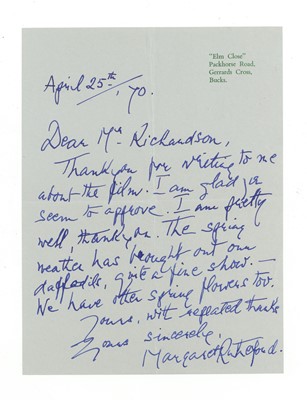 "Elm Close"
Packhorse Road,
Gerrards Cross,
Bucks.
April 25th, 70.
Dear Mr Richardson,
Thankyou for writing to me
about the film. I am glad you
seem to approve. I am pretty
well, thankyou. The spring
weather has brought out our
daffodils, quite a fine show. —
We have other spring flowers too.
Yours, with repeated thanks
Yours sincerely,
Margaret Rutherford.